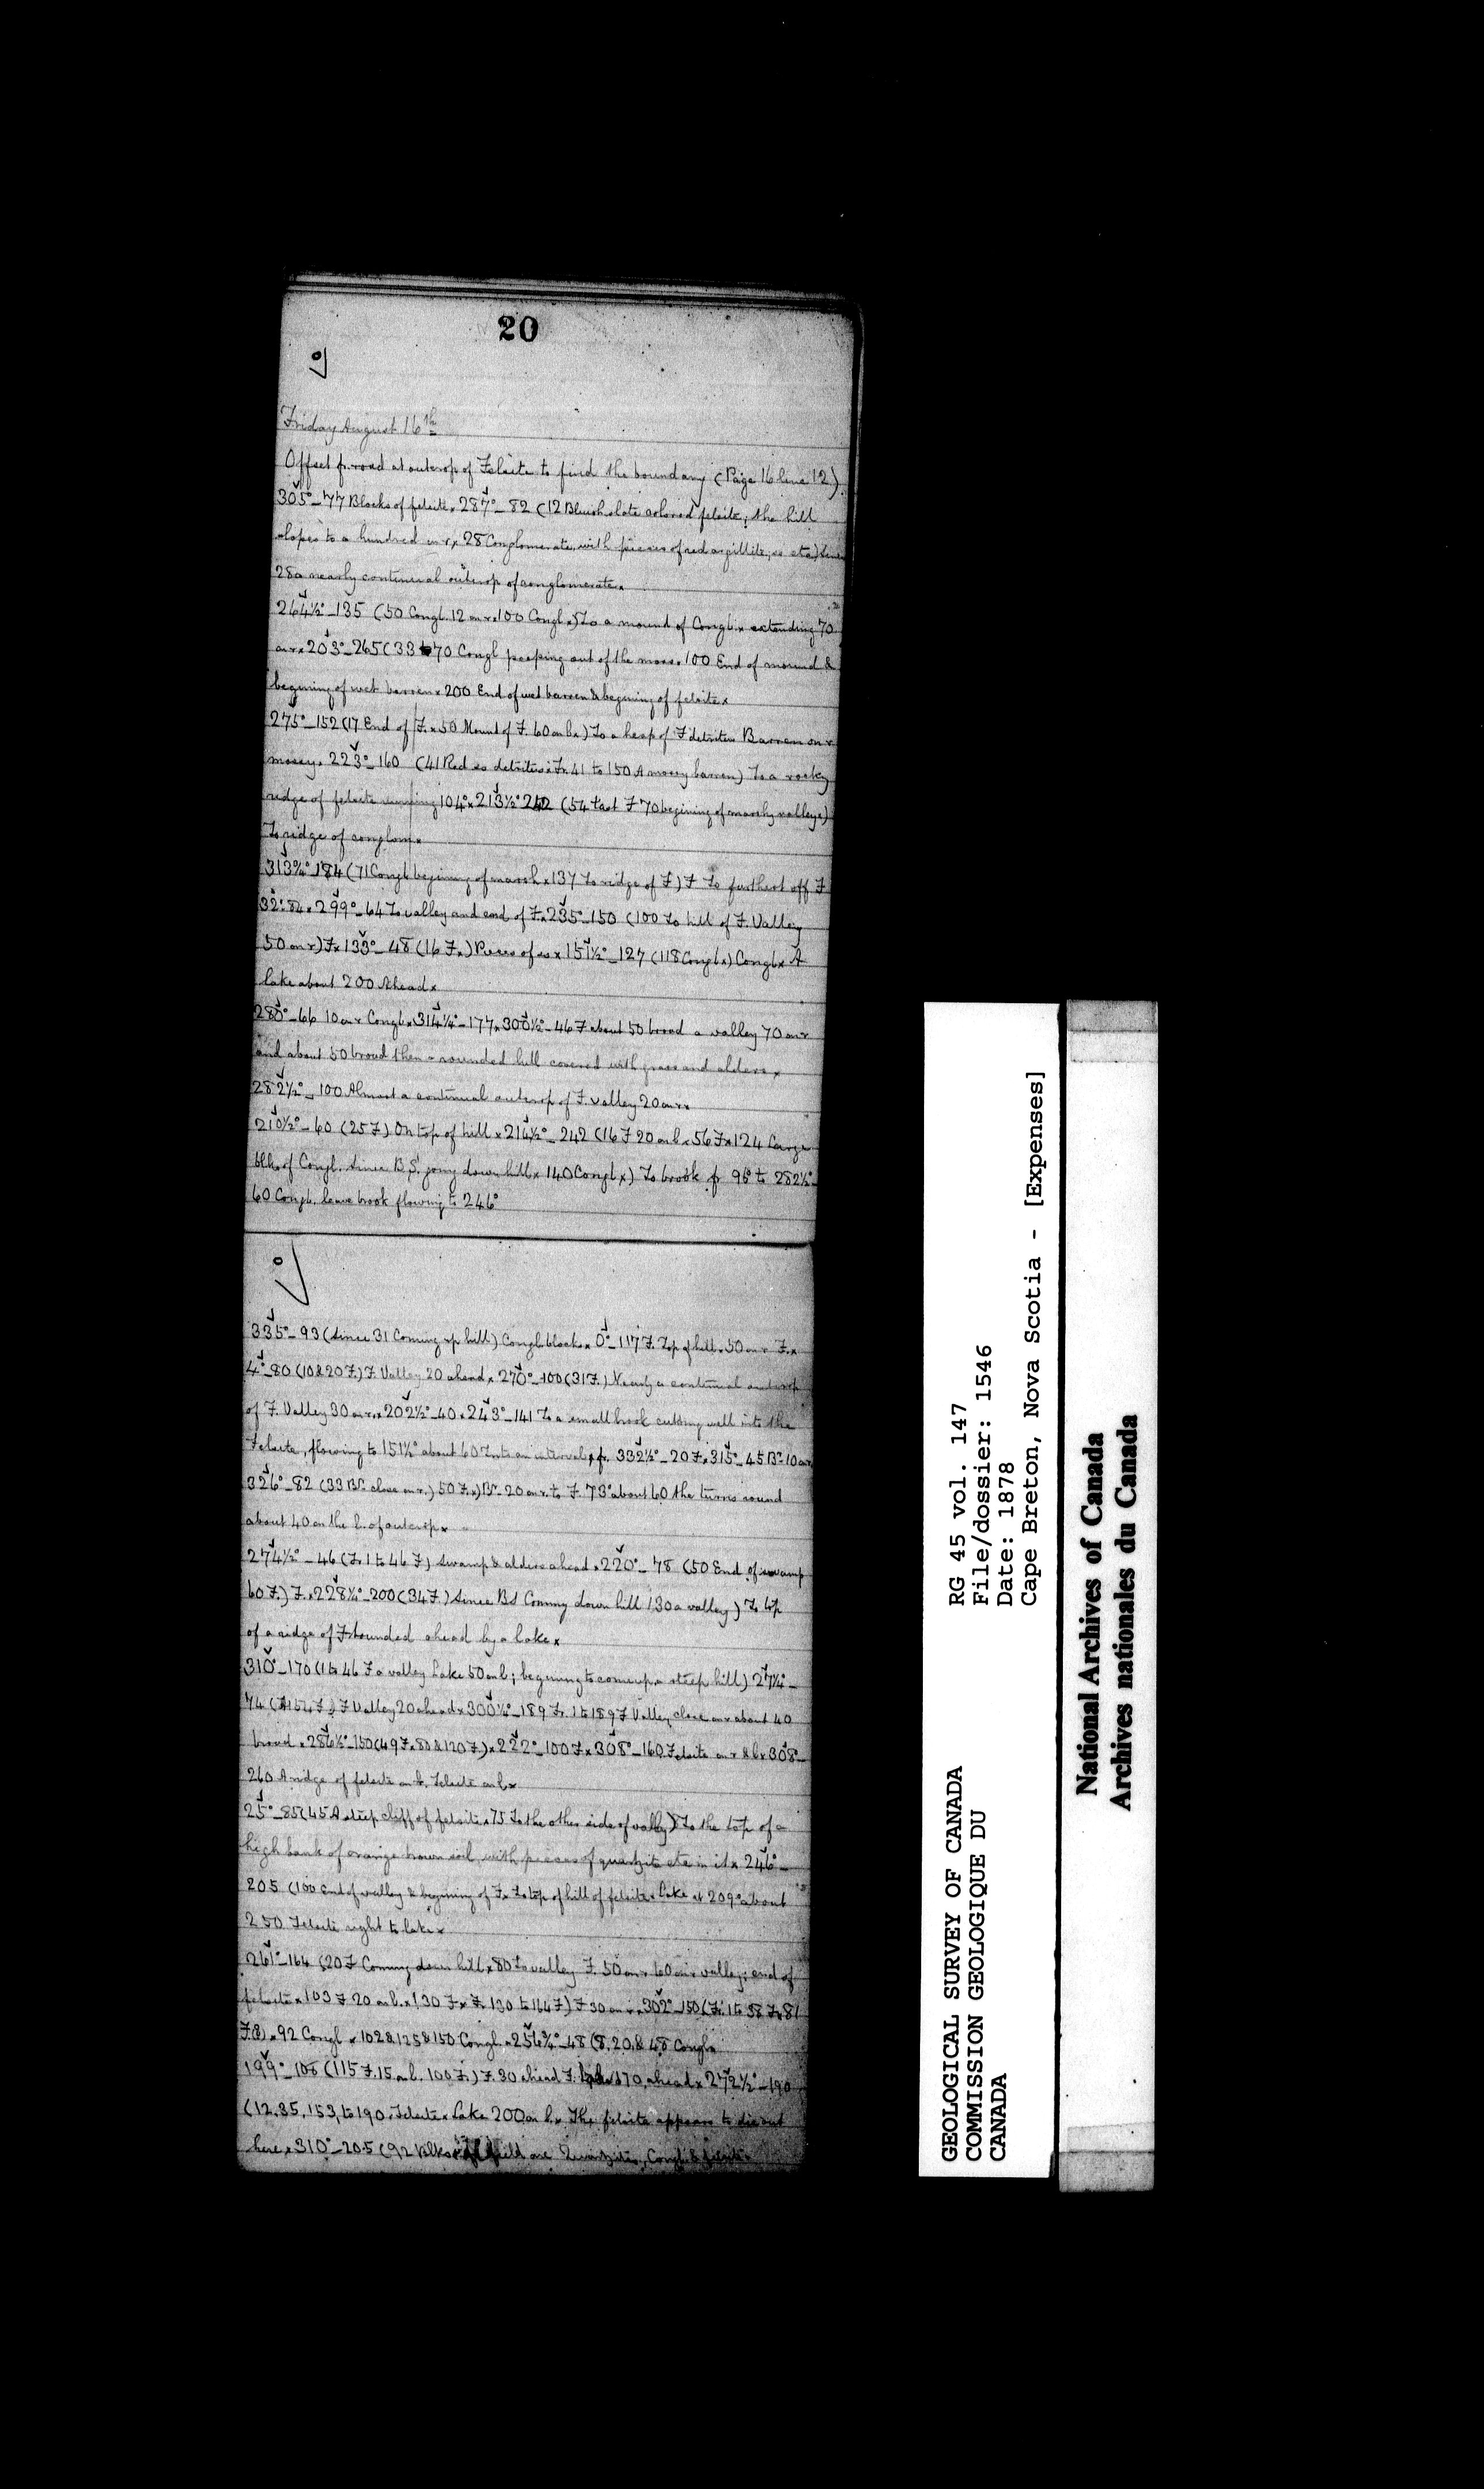 20
Friday August 16th
Offset fr. road at outcrop of Felsite to find the boundary (Page 16 line 12)
305°-77 Blocks of felsite x 287°-82 (12 Bluish slate colored felsite; the hill
slopes to a hundred on r x 28 Conglomerate, with pieces of red argillite, ss etc)
28 a nearly continual outcrop of conglomerate x
264½°-135 (50 Congl. 12 on r x 100 Congl x) To a mound of Congl. x extending 70
on r x 203°-265 (33 to 70 Congl peeping out of the moss x 100 End of mound &
begining of wet barren x 200 End of wet barren & begining of felsite x
275°-152 (17 End of F. x 50 Mount of F. 60 on l x) To a heap of F detritus Barren on r
mossy x 223°-160 (41 Red ss detritus x Fr. 41 to 150 A mossy barren) To a rocky
ridge of felsite running 104° x 213½° 242 (54 last F 70 begining of marshy valley x)
To ridge of conglom x
313¾°-184 (71 Congl begining of marsh x 137 To ridge of F) F To furthest off F
32°: 84 x 299°-64 To valley and end of F. x 235°-150 (100 To hill of F. Valley
50 on r) F x 133°-48 (16 F. x) Pieces of ss x 151½°-127 (118 Congl x) Congl x A
lake about 200 Ahead x
280°-66 10 on r Congl x 314¼°-177 x 300½°-46 F about 50 broad a valley 70 on r
and about 50 broad then a rounded hill covered with grass and alders x
282½°-100 Almost a continual outcrop of F. valley 20 on r x
210½°-60 (25 F) On top of hill x 214½°-242 (16 F 20 on l x 56 F x 124 Large
blks of Congl. Since B.S. going down hill x 140 Congl x) To brook fr 96° to 282½°-
60 Congl. leave brook flowing to 246°
335°-93 (Since 31 Coming up hill) Congl. blocks x 0°-117 F. Top of hill x 50 on r F. x
4°-80 (10 & 20 F.) F. Valley 20 ahead x 270°-100 (31 F.) Nearly a continual outcrop
of F. Valley 30 on r x 202½°-40 x 243°-141 To a small brook cutting well into the
Felsite, flowing to 151½° about 60 Into an interval, fr. 332½°-20 F. x 315°-45 Bk 10 on r
326°-82 (33 Bk. close on r.) 50 F. x) Bk 20 on r. to F. 73° about 60 the turns round
about 40 on the l. of outcrop x
274½°-46 (Fr. 1 to 46 F) Swamp & alders ahead x 220°-78 (50 End of swamp
60 F.) F. x 228¼°-200 (34 F.) Since BS Coming down hill 130 a valley) To top
of a ridge of F bounded ahead by a lake x
310°-170 (1 to 46 F a valley Lake 50 on l; begining to come up a steep hill) 271¼°-
74 F Valley 20 ahead x 300¼°-189 Fr. 1 to 189 F Valley, close on r about 40
broad x 286½°-150 (49 F. x 80 & 120 F.) x 222°-100 F x 308°-160 Felsite on r & l x 308°-
260 A ridge of felsite on r. Felsite on l x
25°-85 (45 A steep cliff of felsite x 75 To the other side of valley) To the top of a
high bank of orange brown soil, with pieces of quartzite etc in it x 246°-
205 (100 end of valley & begining of F. x To top of hill of felsite x Lake at 209° about
250 Felsite right to lake x
261°-164 (20 F Coming down hill x 80 To valley F. 50 on r 60 on r valley; end of
felsite x 103 F 20 on l. x 130 F x Fr. 130 to 164 F) F 30 on r x 302°-150 (Fr. 1 to 38 F x 81
F.(?) x 92 Congl x 102 & 125 & 150 Congl. x 256¾°-48 (8, 20, & 48 Congl x
199°-106 (115 F. 15 on l. 100 F.) F. 30 ahead F. 170 ahead x 272½°-190
(12, 35, 153, to 190, Felsite x Lake 200 on l. x The felsite appears to die out
here x 310°-205 (92 blks field are Quartzites, Congl. & felsite
GEOLOGICAL SURVEY OF CANADA
COMMISSION GEOLOGIQUE DU
CANADA
RG 45 vol. 147
File/dossier: 1546
Date: 1878
Cape Breton, Nova Scotia - [Expenses]
National Archives of Canada
Archives nationales du Canada